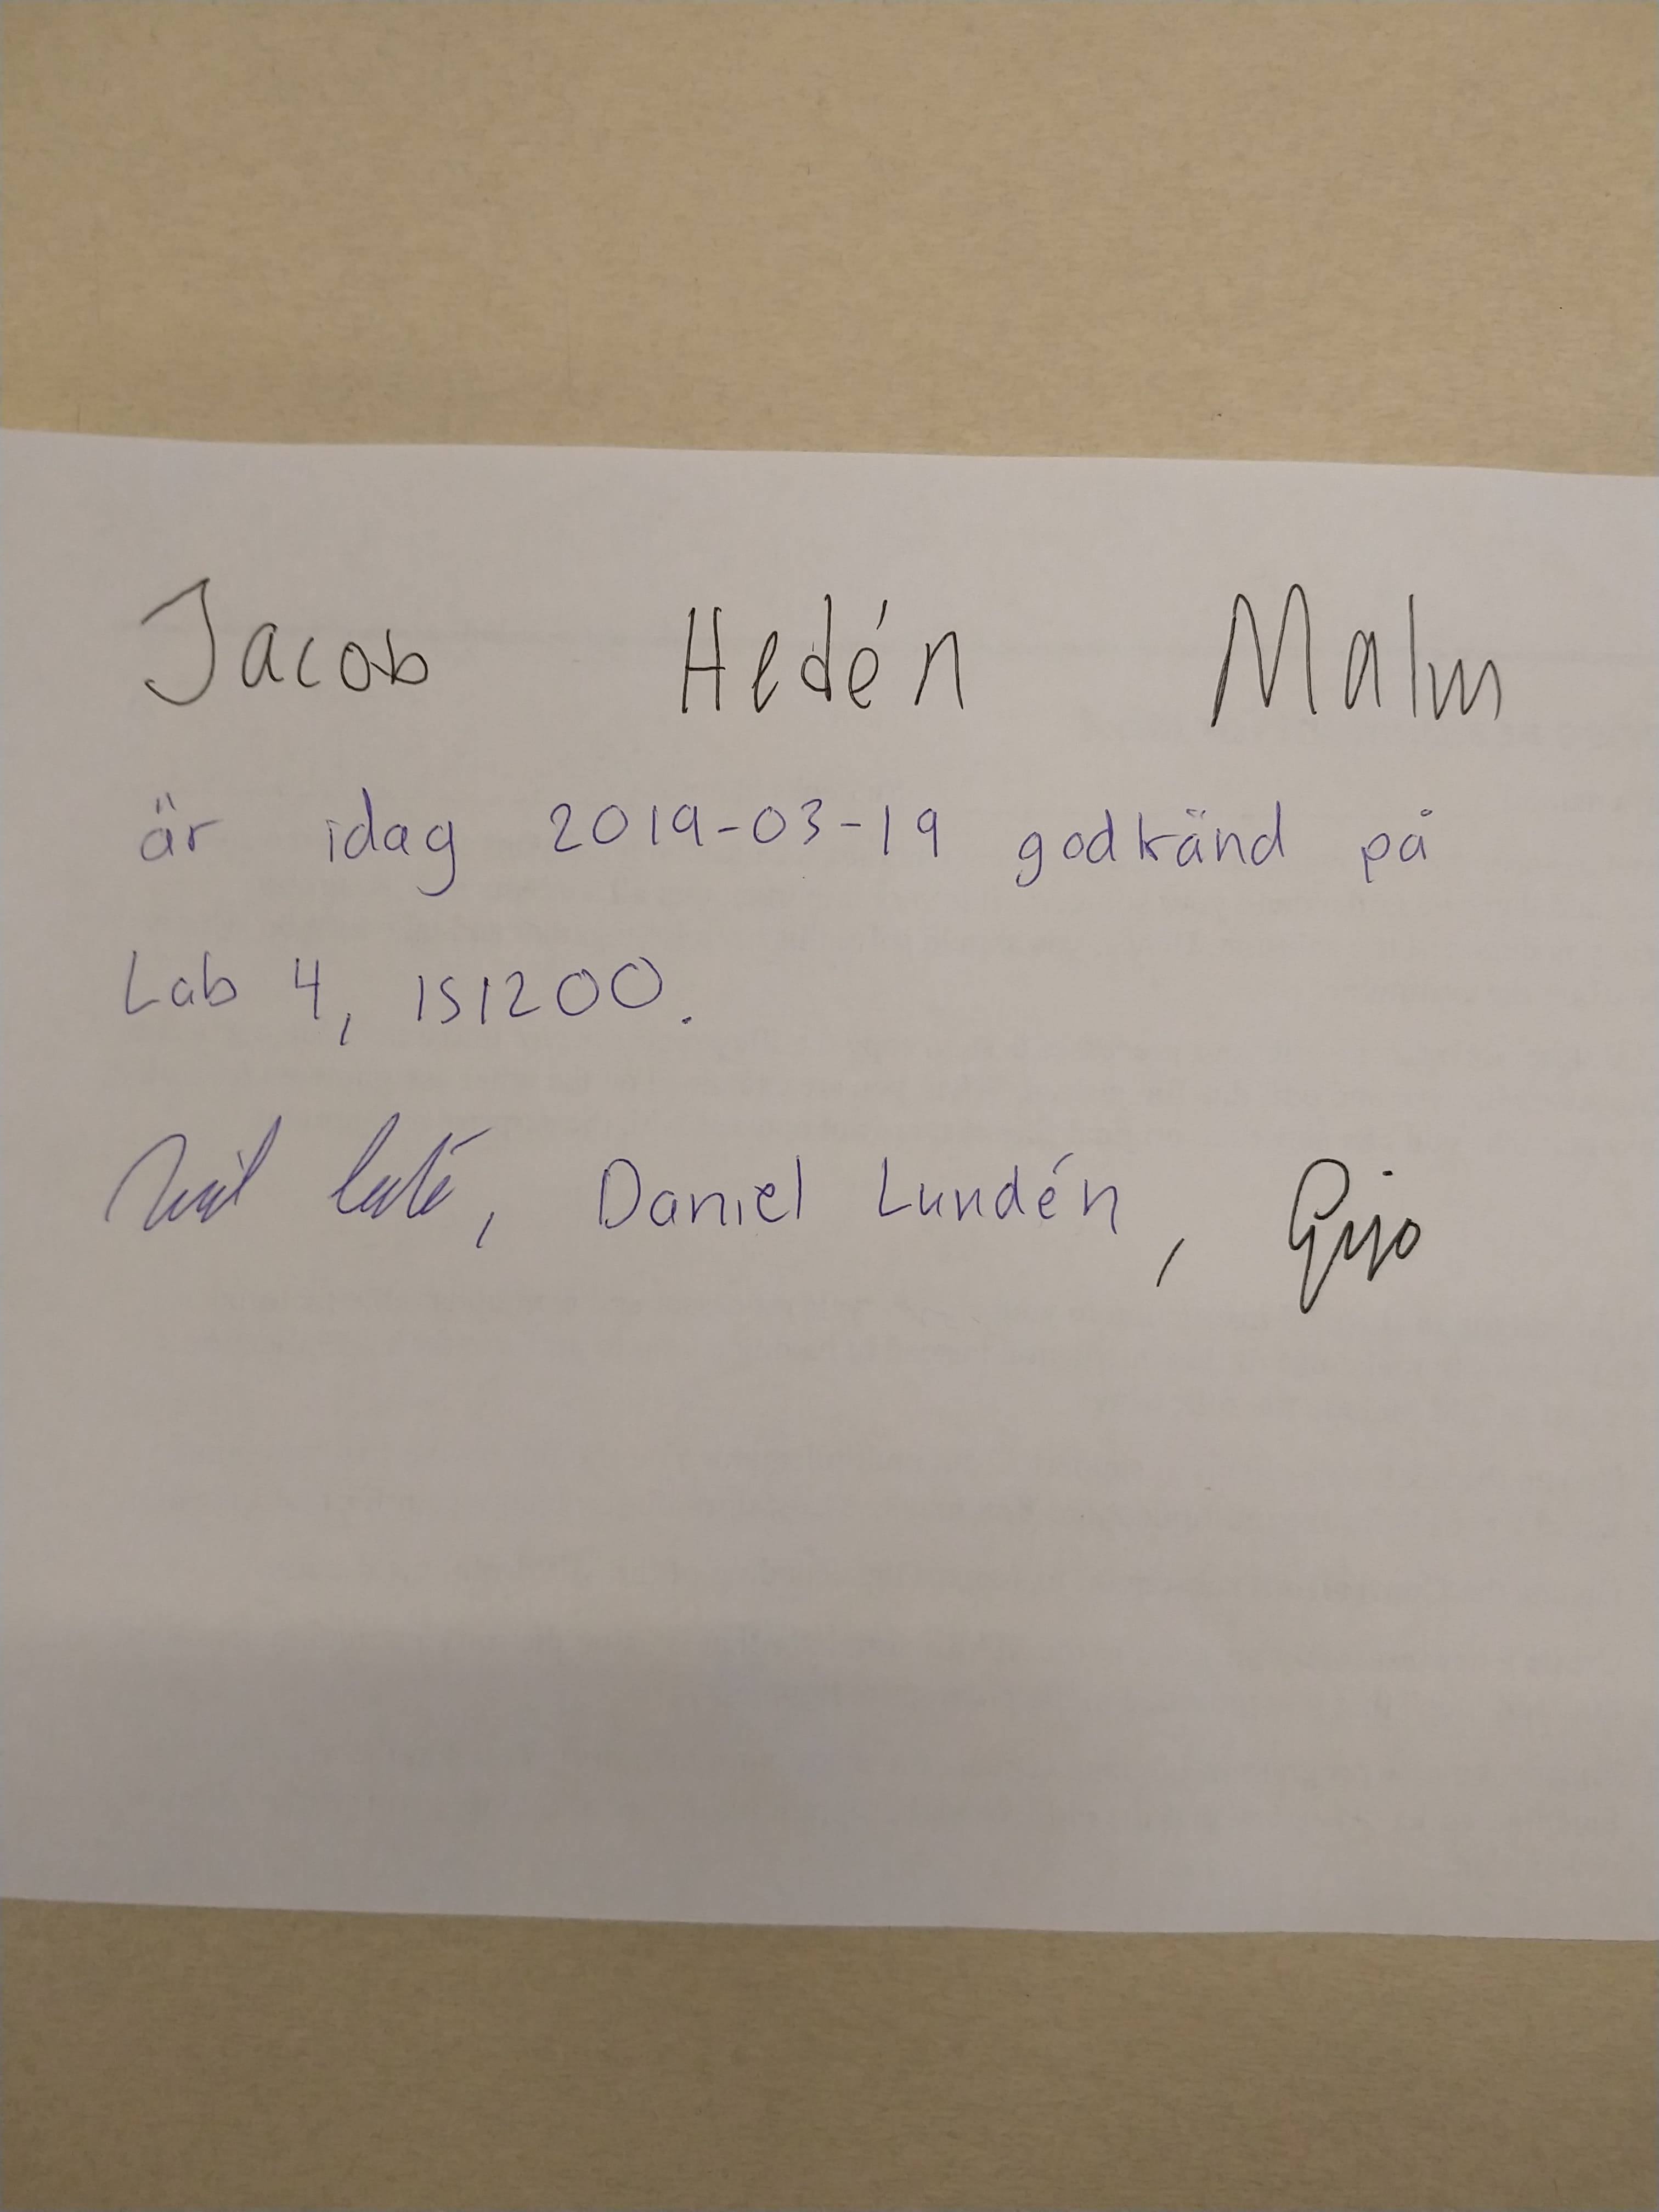 Jacob Hedén Malm
är idag 2019-03-19 godkänd på
Lab 4, IS1200.
, Daniel Lundén,